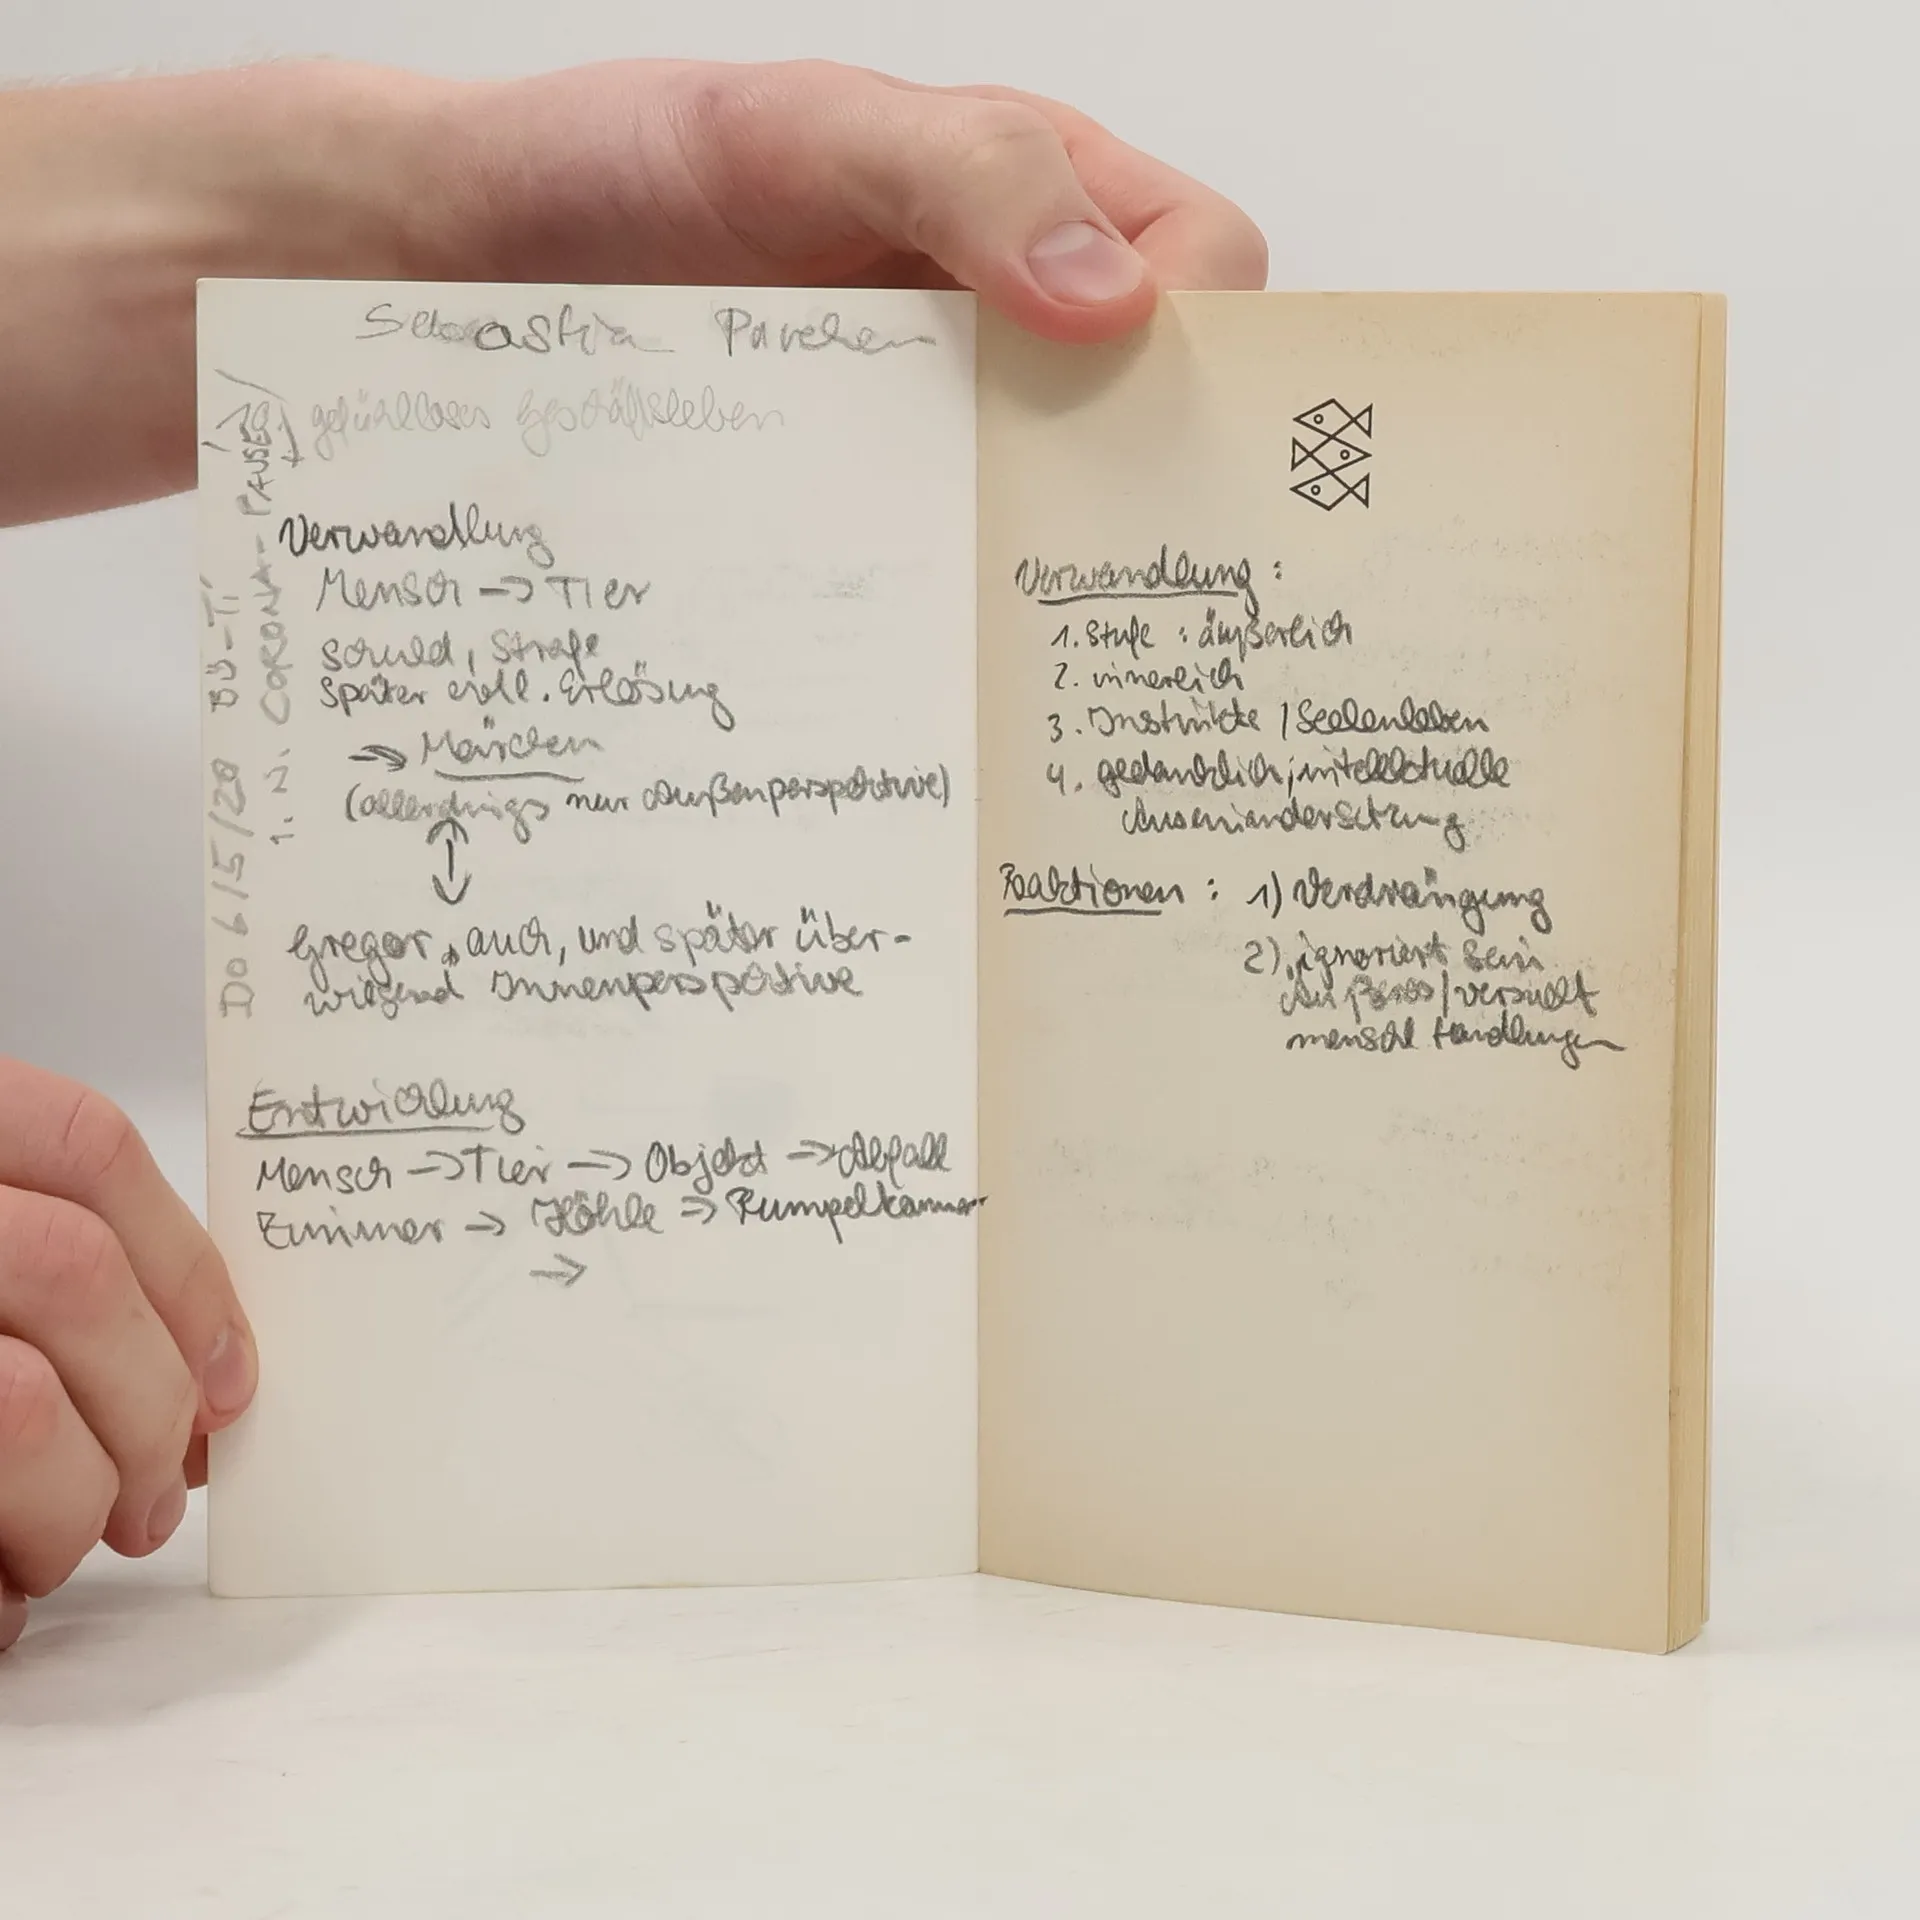 Sebastian
gefühlloses Geschäftsleben
Do 6/5/20 BÜ-TI
1. N. CORONA-PAUSE
Verwandlung
Mensch -> Tier
Schuld, Strafe
später evtl. Erlösung
-> Märchen
(allerdings nur Außenperspektive)
Gregor auch, und später über-
wiegend Innenperspektive
Entwicklung
Mensch -> Tier -> Objekt -> Abfall
Zimmer -> Höhle -> Rumpelkammer
->
Verwandlung:
1. Stufe: äußerlich
2. innerlich
3. Instinkte / Seelenleben
4. gedanklich; intellektuelle
Auseinandersetzung
Reaktionen: 1) Verdrängung
2) ignoriert sein
Äußeres / versucht
menschl Handlungen